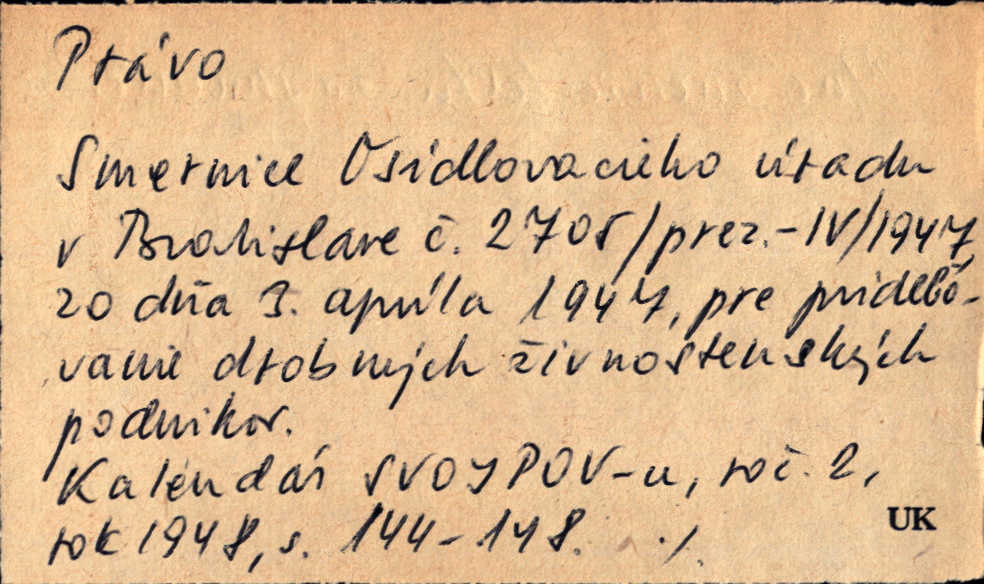 Právo
Smernice Osídlovacieho úradu
v Bratislave č. 2705/prez.-IV/1947
zo dňa 3. apríla 1947, pre prideľo-
vanie drobných živnostenských
podnikov.
Kalendár SVOJPOV-u, roč. 2,
rok 1948, s. 144-148. ./.
UK